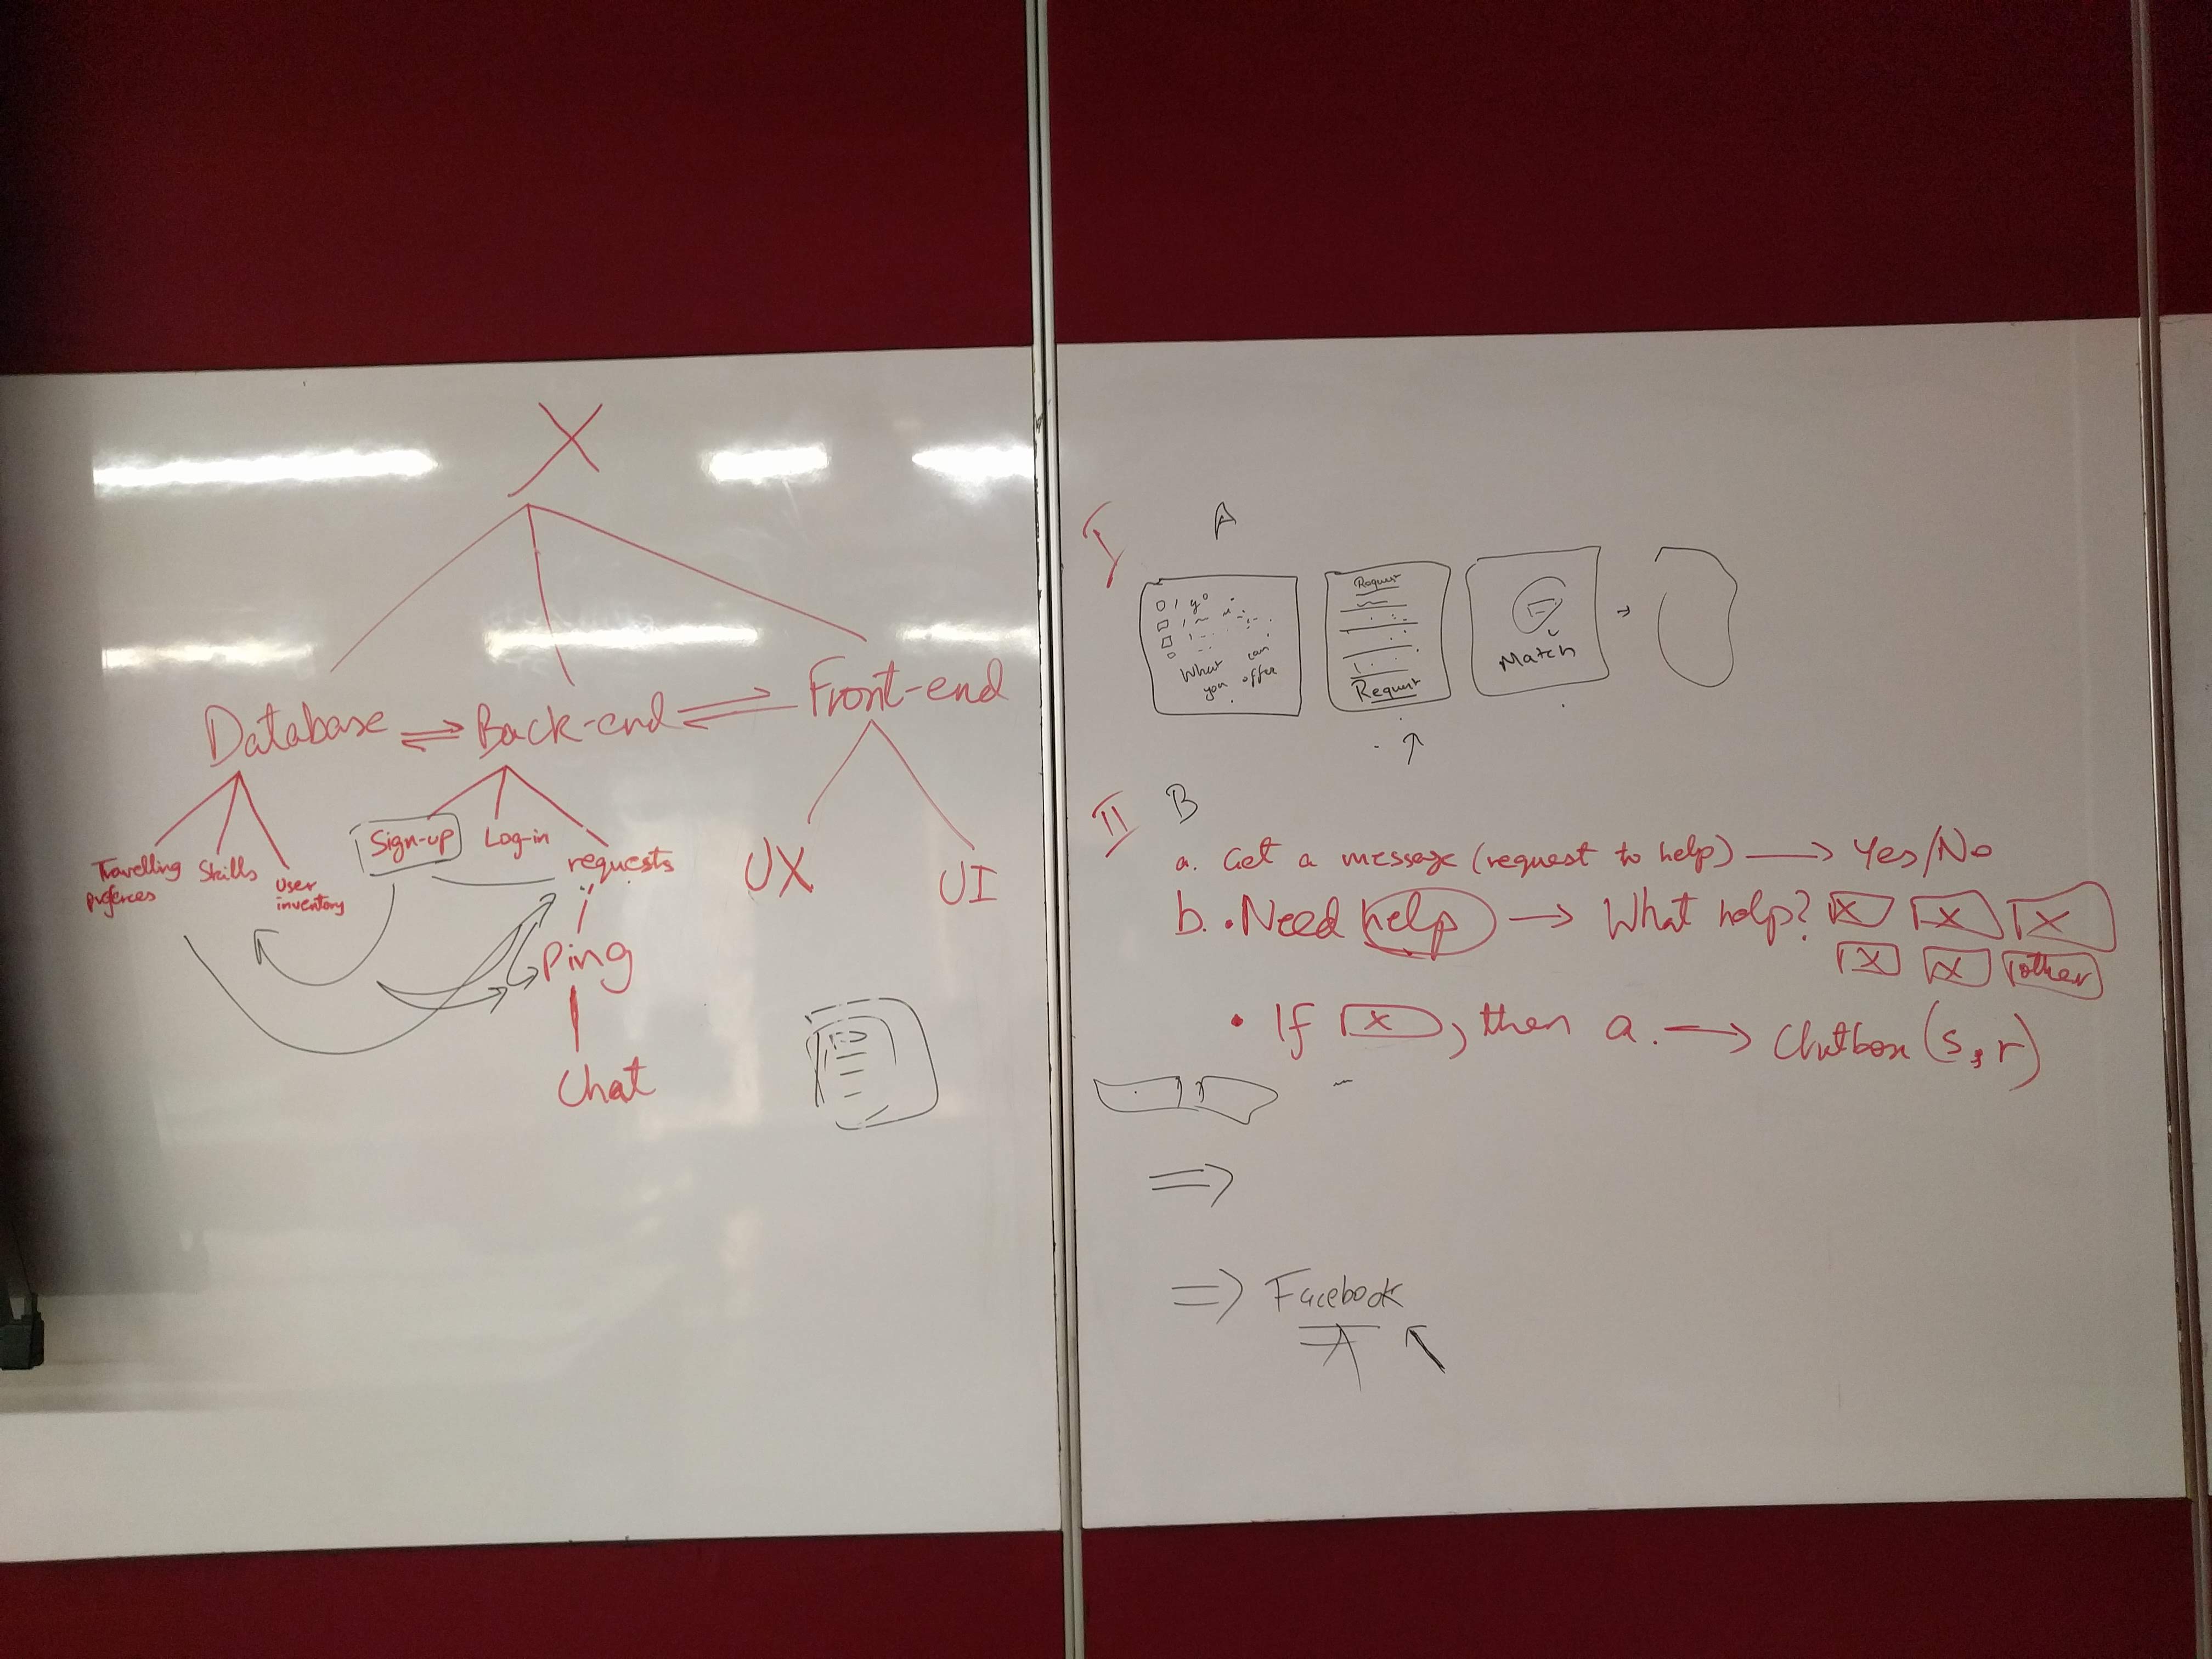 X
Database ⇌ Back-end ⇌ Front-end
Travelling
prefereces
Skills
User
inventory
Sign-up
Log-in
requests
UX
UI
Ping
Chat
I
A
What can
you offer
Request
Request
Match
II B
a. Get a message (request to help) → Yes/No
b. • Need help → What help? X X X
X X other
• If X, then a. → Chatbox (s, r)
⇒
⇒ Facebook